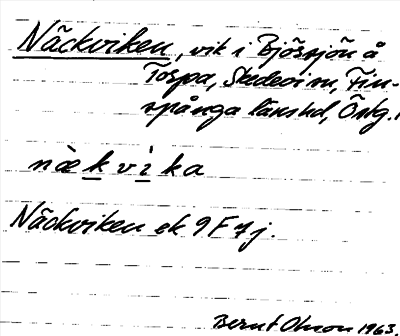 Näckviken, vik i Björsjön å
Torpa, Skedevi sn, Fin-
spånga länshd, Östg.
næ̀kvìka
Näckviken ek 9F7j.
Bernt Olsson 1963.